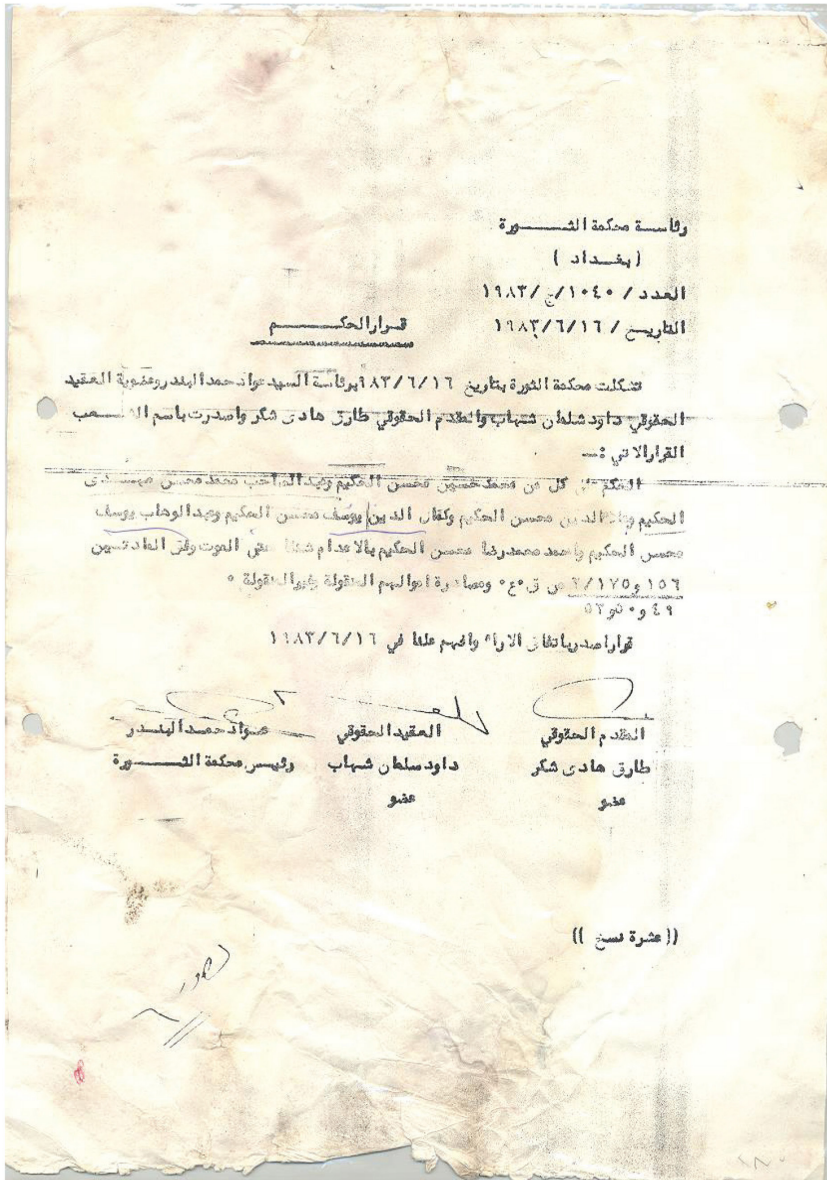 رئاسة محكمة الثـــــورة
( بغـداد )
العدد / ١٠٤٠/ج/١٩٨٣
التاريخ / ١٩٨٣/٦/١٦
قرار الحكـــــم
تشكلت محكمة الثورة بتاريخ ٩٨٣/٦/١٦ برئاسة السيد عواد حمد البندر وعضوية العقيد
الحقوقي داود سلمان شهاب والمقدم الحقوقي طارق هادي شكر واصدرت باسم الشـعب
القرار الاتي :ــ
الحكم على كل من محمد حسين محسن الحكيم وعبد الصاحب محمد محسن مهـــدي
الحكيم وعلاء الدين محسن الحكيم وكمال الدين يوسف محسن الحكيم وعبد الوهاب يوسف
محسن الحكيم واحمد محمد رضا محسن الحكيم بالاعدام شنقا حتى الموت وفق المادتــين
١٥٦ و ٢/١٧٥ من ق٠ع٠ ومصادرة اموالهم المنقولة وغير المنقولة ٠
٤٩ و ٥٠ و ٥٣
قرارا صدر باتفاق الاراء وافهم علنا في ١٩٨٣/٦/١٦
المقدم الحقوقي العقيد الحقوقي عـواد حمد البنـدر
طارق هادي شكر داود سلمان شهاب رئيس محكمة الثـــــورة
عضو عضو
(( عشرة نسخ ))